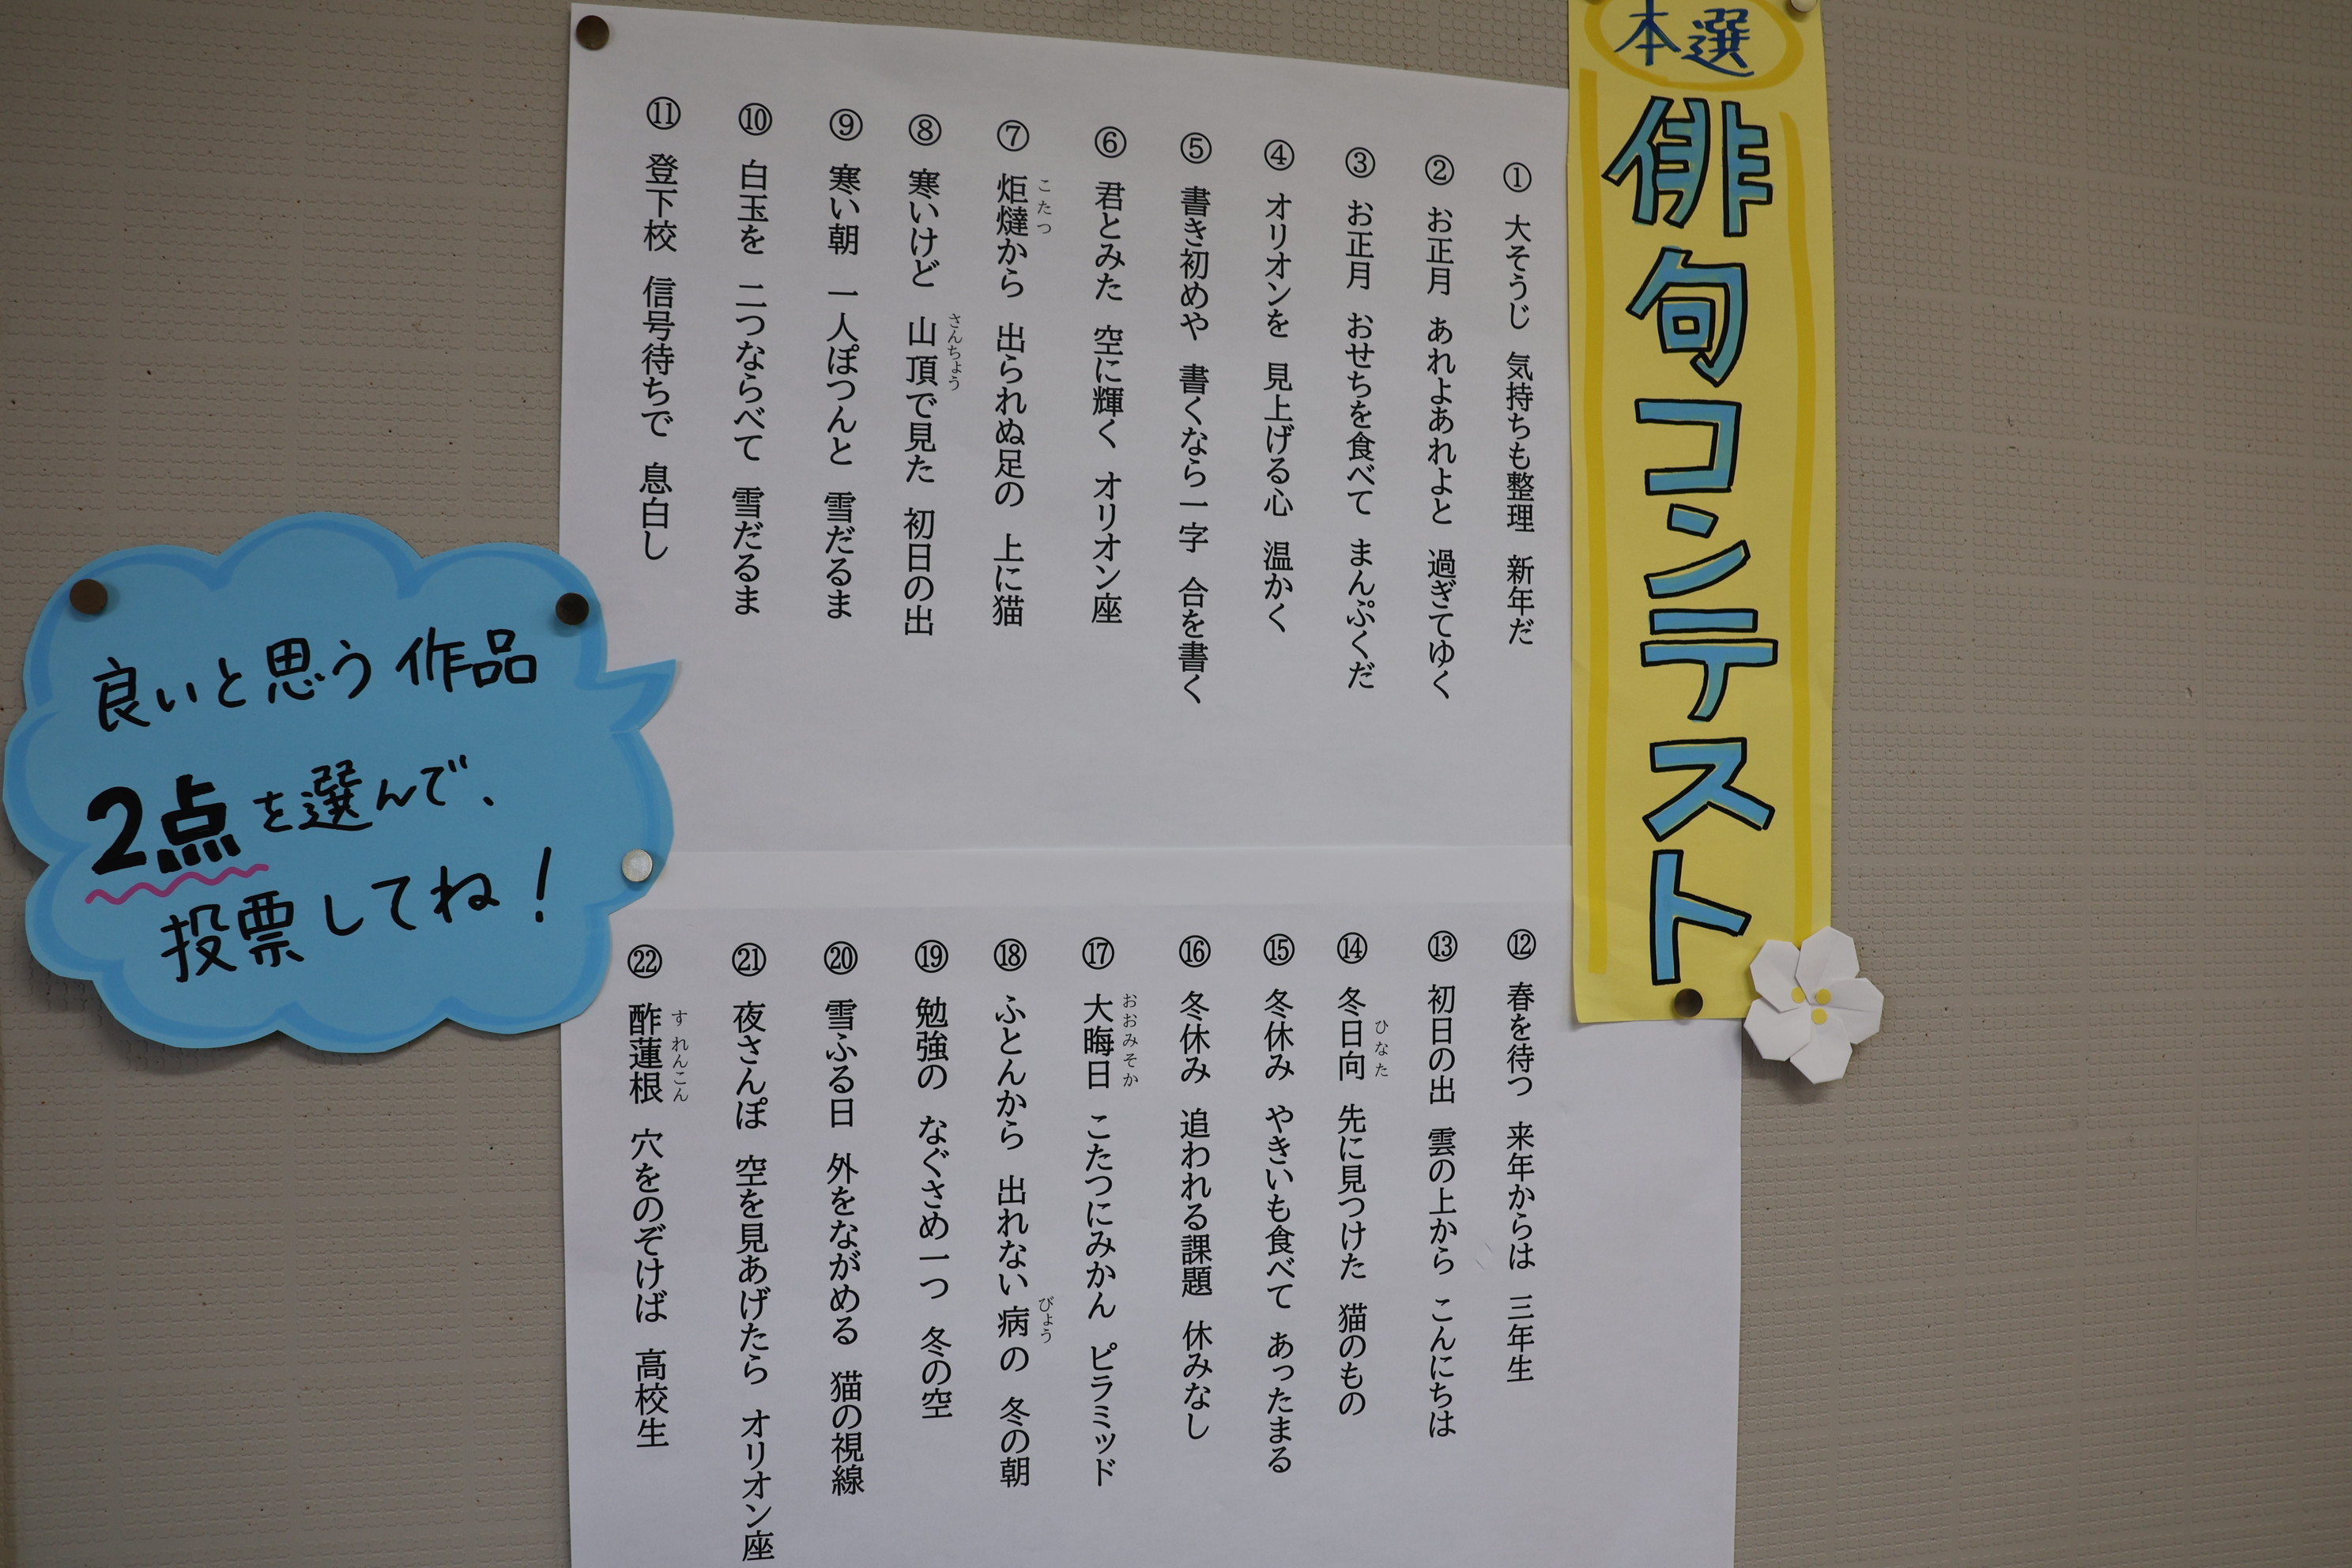 本選
俳句コンテスト
① 大そうじ 気持ちも整理 新年だ
② お正月 あれよあれよと 過ぎてゆく
③ お正月 おせちを食べて まんぷくだ
④ オリオンを 見上げる心 温かく
⑤ 書き初めや 書くなら一字 合を書く
⑥ 君とみた 空に輝く オリオン座
こたつ
⑦ 炬燵から 出られぬ足の 上に猫
さんちょう
⑧ 寒いけど 山頂で見た 初日の出
⑨ 寒い朝 一人ぽつんと 雪だるま
⑩ 白玉を 二つならべて 雪だるま
⑪ 登下校 信号待ちで 息白し
⑫ 春を待つ 来年からは 三年生
⑬ 初日の出 雲の上から こんにちは
ひなた
⑭ 冬日向 先に見つけた 猫のもの
⑮ 冬休み やきいも食べて あったまる
⑯ 冬休み 追われる課題 休みなし
おおみそか
⑰ 大晦日 こたつにみかん ピラミッド
びょう
⑱ ふとんから 出れない病の 冬の朝
⑲ 勉強の なぐさめ一つ 冬の空
⑳ 雪ふる日 外をながめる 猫の視線
㉑ 夜さんぽ 空を見あげたら オリオン座
すれんこん
㉒ 酢蓮根 穴をのぞけば 高校生
良いと思う作品
2点を選んで、
投票してね！